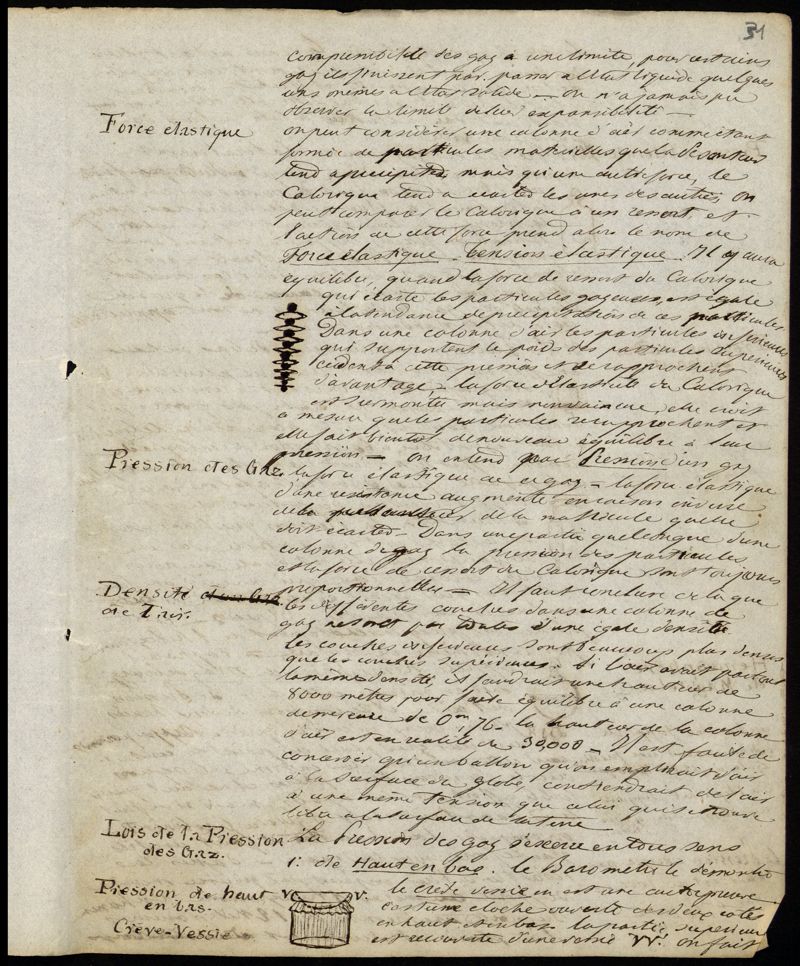 31
compressibilité des gaz a une limite, pour certains
gaz ils puissent par. passer a l'état liquide quelques
uns mêmes a l'état solide — on n'a jamais pu
observer la limite de leur expansibilité —
Force élastique
on peut considérer une colonne d'air comme étant
formée de particules materielles que la pesanteur
tend a precipiter mais qu'une autre force, le
Calorique tend a ecarter les unes des autres on
peut comparer le Calorique à un ressort et
l'action de cette force prend alors le nom de
force élastique. Tension élastique. Il y aura
équilibre, quand la force de ressort du Calorique
qui écarte les particules gazeuses, est égale
à la tendance de précipitation de ces particules
Dans une colonne d'air les particules inférieures
qui supportent le poids des particules supérieures
cèdent a cette pression et se rapprochent
d'avantage, la force d'élasticité du Calorique
est surmontée mais non vaincue, elle croit
a mesure que les particules se rapprochent et
elle fait bientot de nouveau équilibre à leur
pression —
Pression des Gaz.
on entend par Pression d'un gaz
la force élastique de ce gaz — la force élastique
d'une résistance augmente en raison inverse
de la de la molécule quelle
doit écarter — Dans une partie quelconque d'une
colonne de gaz la pression des particules
et la force de ressort du Calorique sont toujours
proportionnelles —
Densité d'un Gaz
de l'air.
Il faut conclure de la que
les différentes couches dans une colonne de
gaz ne sont pas toutes d'une égale densité
les couches inférieures sont beaucoup plus denses
que les couches supérieures. Si l'air avait partout
la même densité il faudrait une hauteur de
8000 mètres pour faire équilibre à une colonne
de mercure de 0m,76 — la hauteur de la colonne
d'air est en réalité de 30,000 — Il est facile de
concevoir qu'un ballon qu'on emplirait d'air
à la surface du globe, contiendrait de l'air
à une même tension que celui qui se trouve
libre a la surface de la terre
Lois de la Pression
des Gaz.
La Pression des gaz s'exerce en tous sens
1: de Haut en bas. le Baromètre le démontre
Pression de haut
en bas.
Crève-Vessie
V. V.
le crève vessie en est une autre preuve
c'est une cloche ouverte des deux cotés
en haut et en bas la partie supérieure
est recouverte d'une vessie VV. on fait